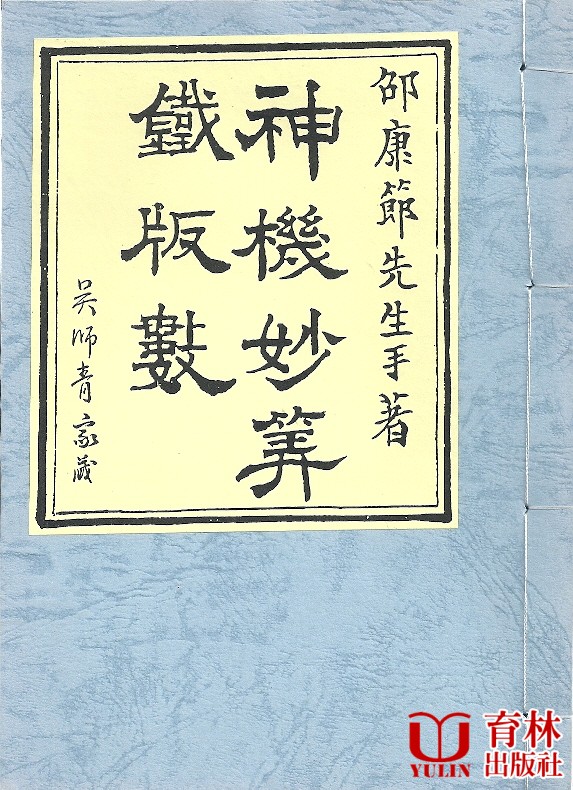 邵康節先生手著
神機妙筭
鐵版數
吳師青家藏
育林
出版社
YULIN